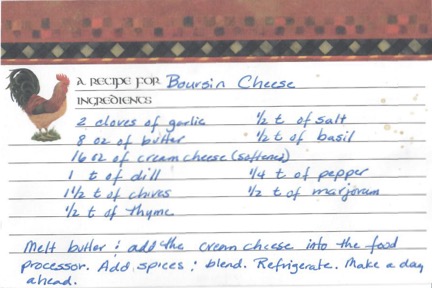 A RECIPE FOR Boursin Cheese
INGREDIENTS
2 cloves of garlic ½ t of salt
8 oz of butter ½ t of basil
16 oz of cream cheese (softened)
1 t of dill ¼ t of pepper
1½ t of chives ½ t of marjoram
½ t of thyme
Melt butter & add the cream cheese into the food
processor. Add spices & blend. Refrigerate. Make a day
ahead.